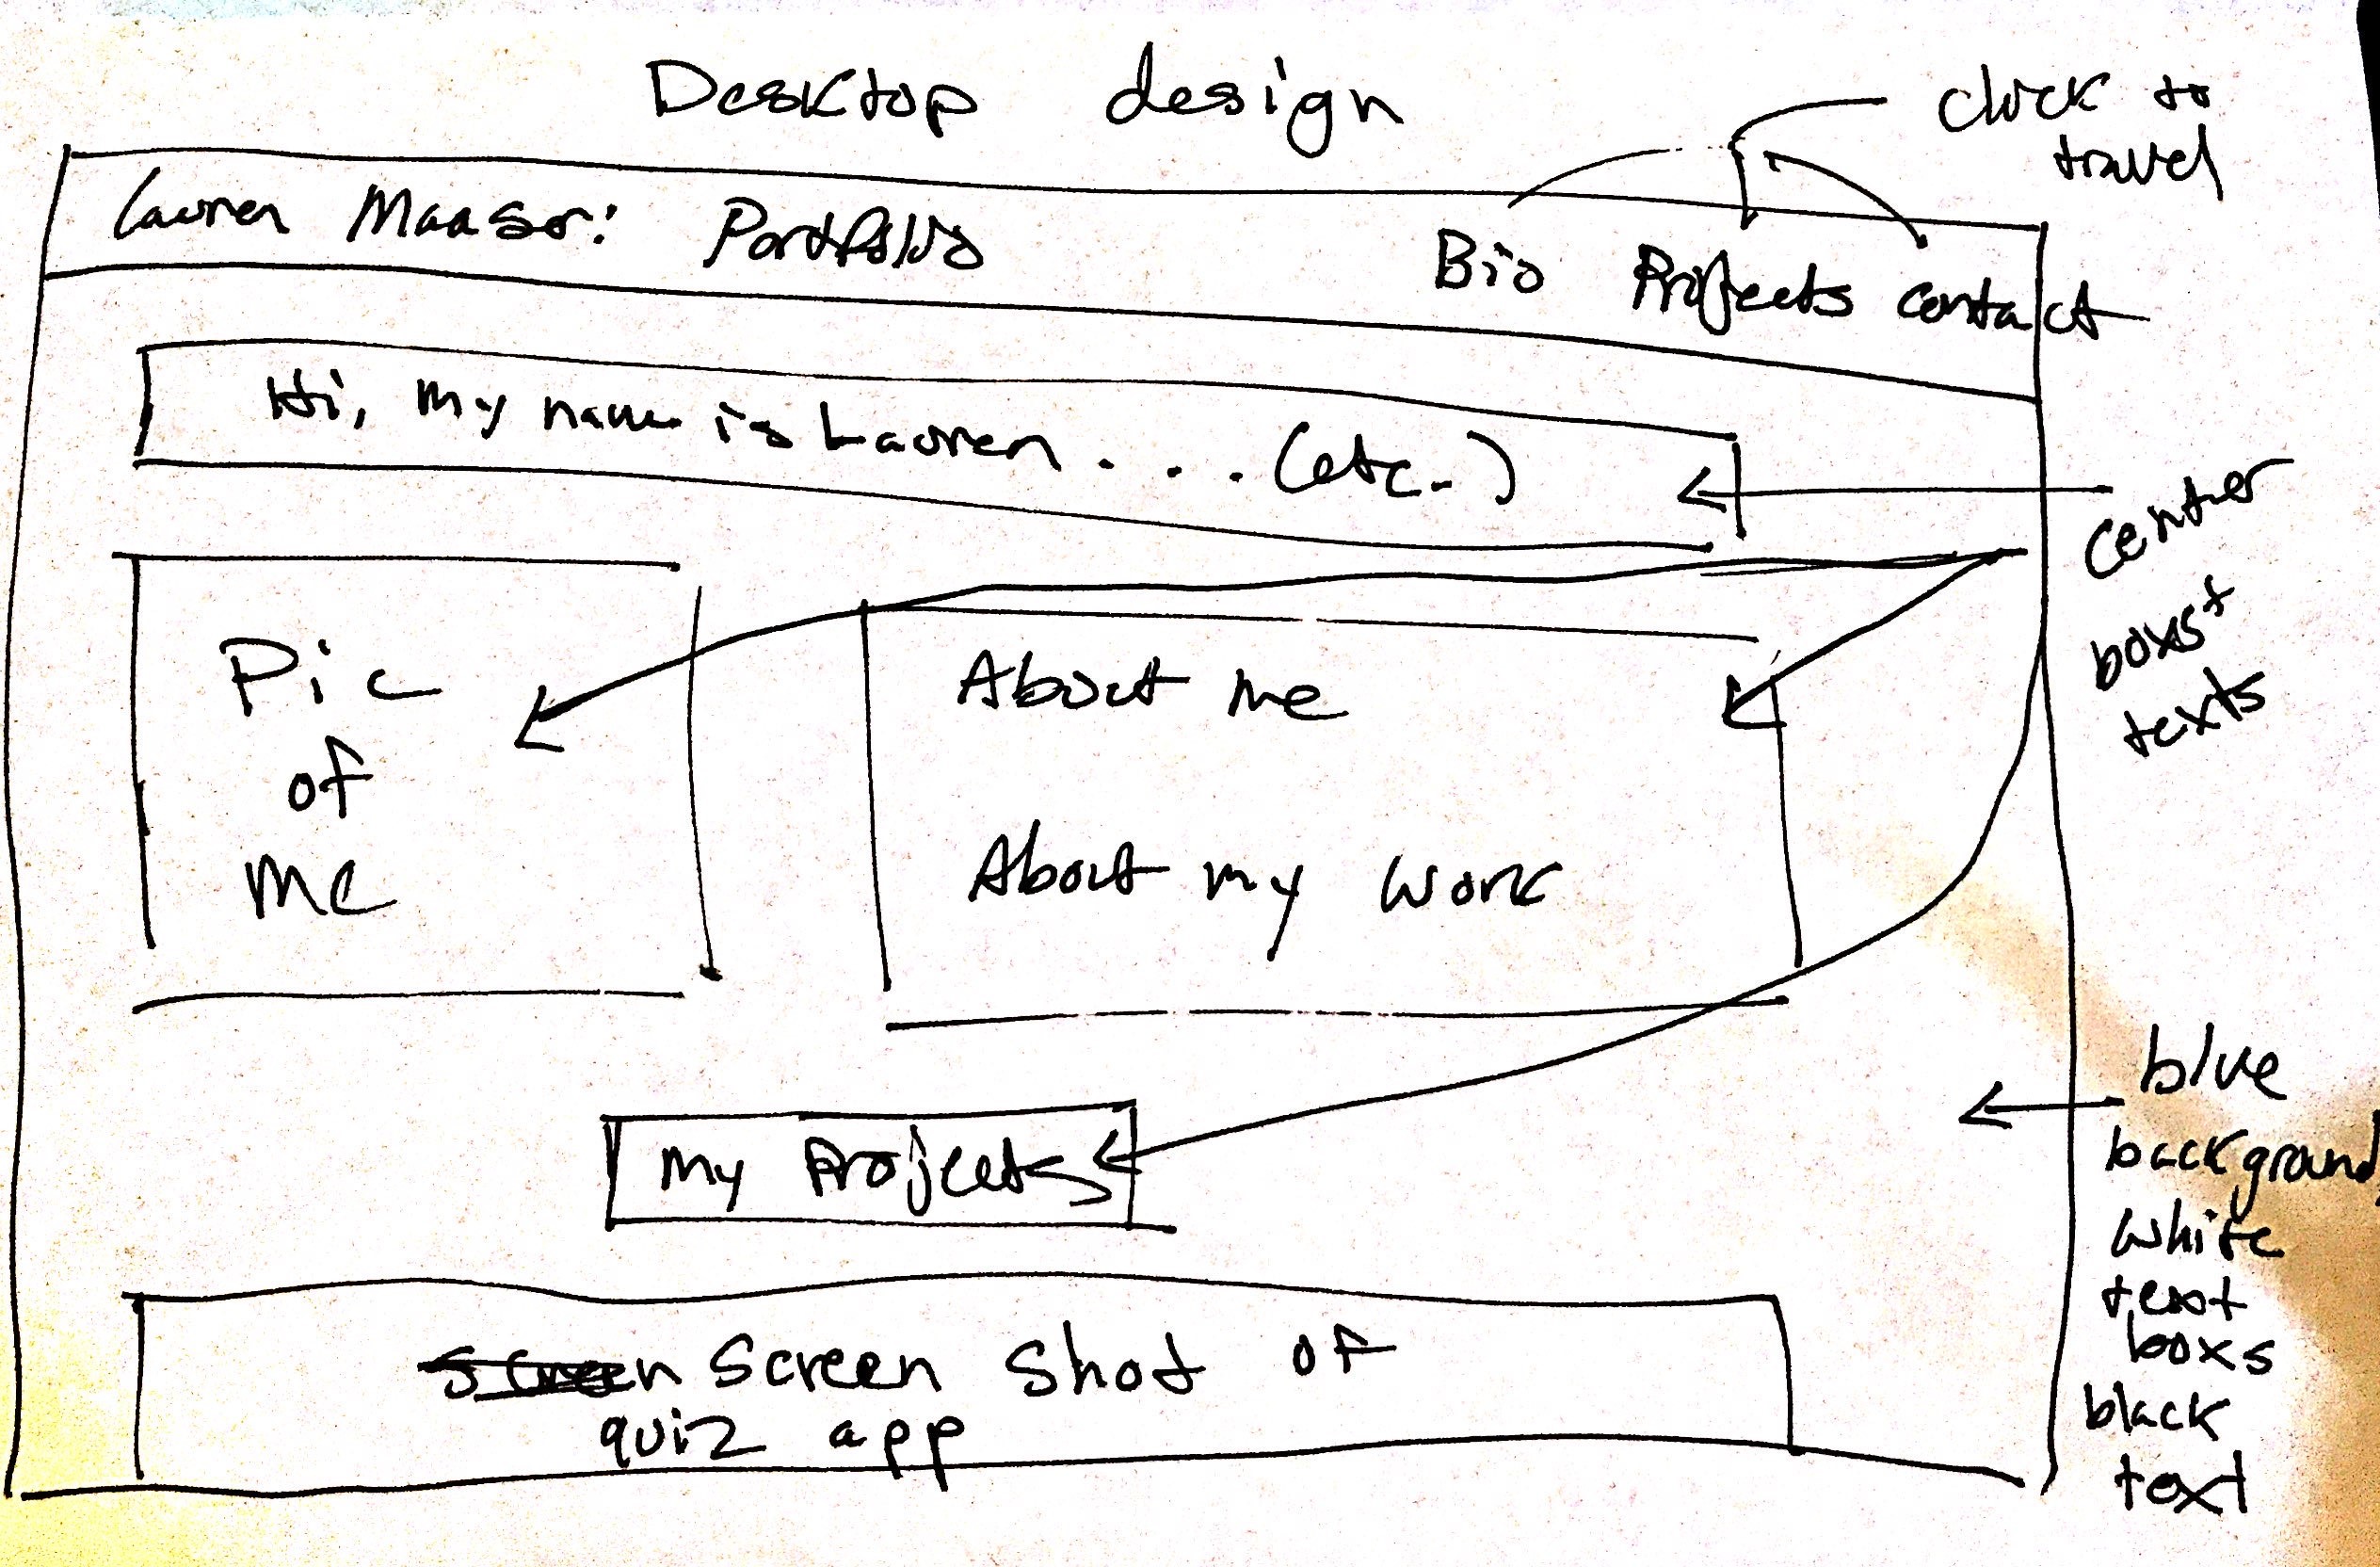 Desktop design
click to
travel
Lauren Maaser: Portfolio
Bio Projects contact
Hi, my name is Lauren . . . (etc.)
center
boxs +
texts
Pic
of
me
About me
About my work
blue
background,
white
text
boxs
black
text
My Projects
screen shot of
quiz app